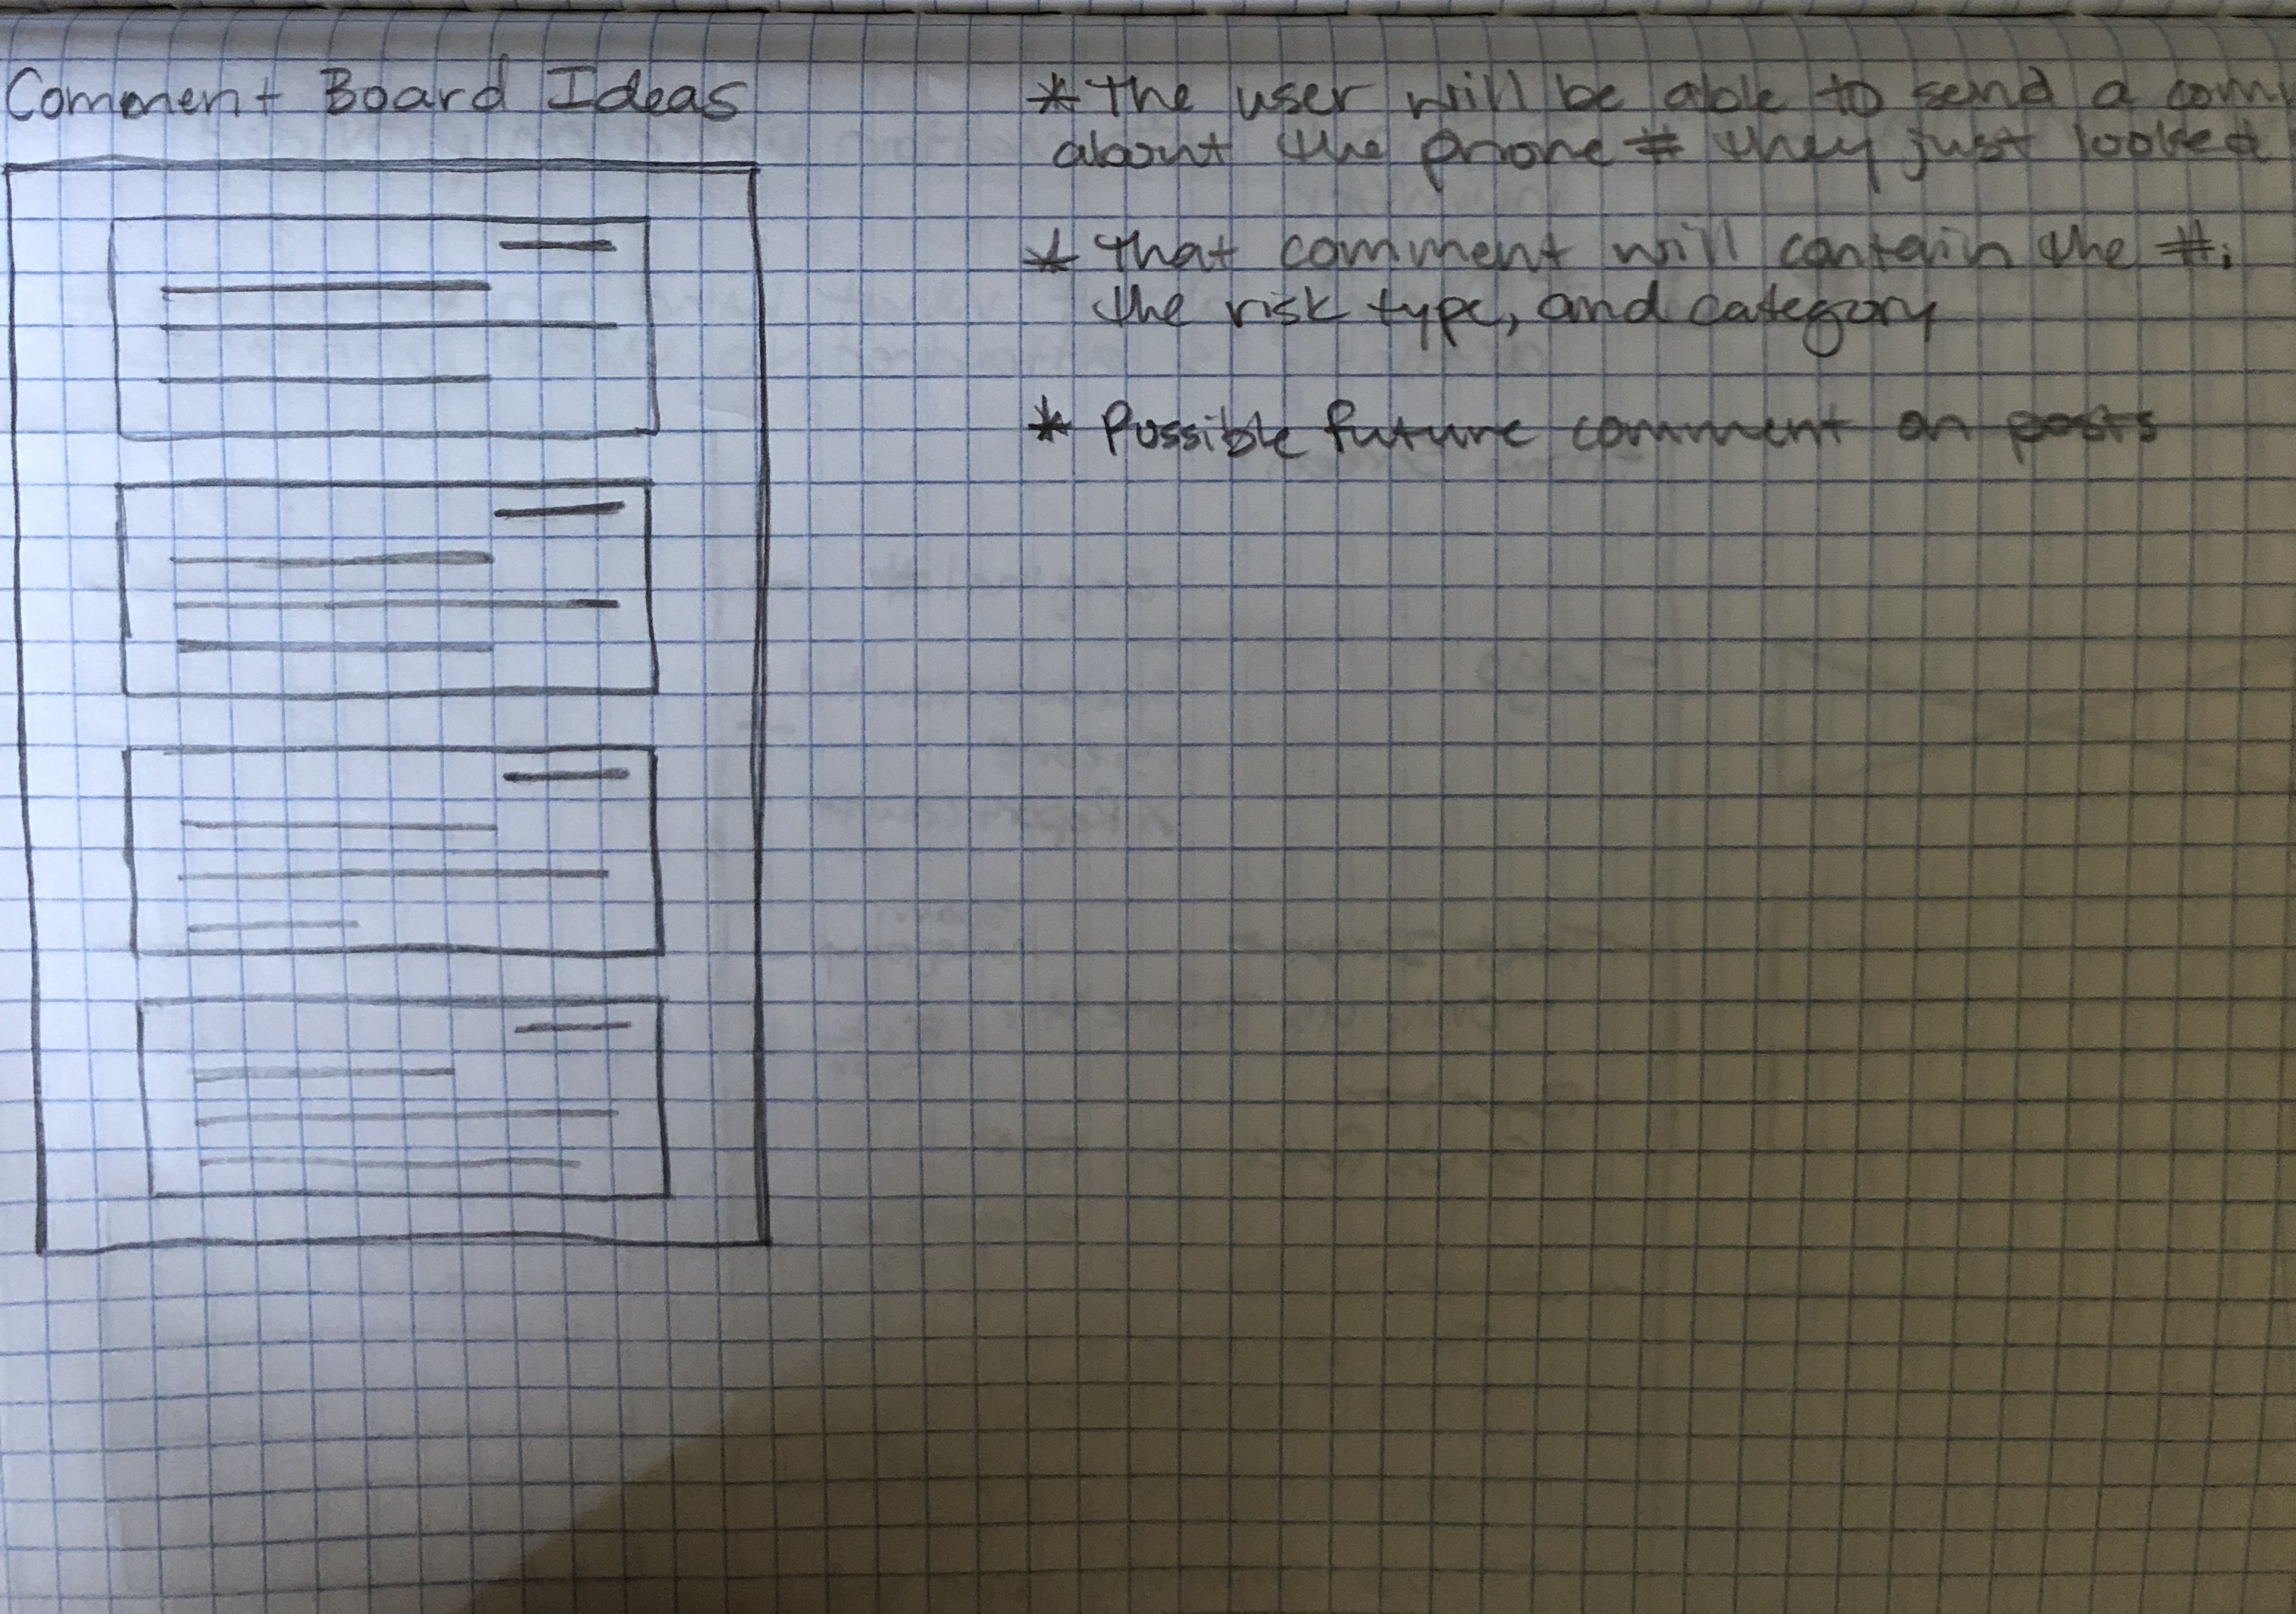 Comment Board Ideas
* The user will be able to send a com
about the phone # they just looked
* That comment will contain the #,
the risk type, and category
* Possible future comment on posts